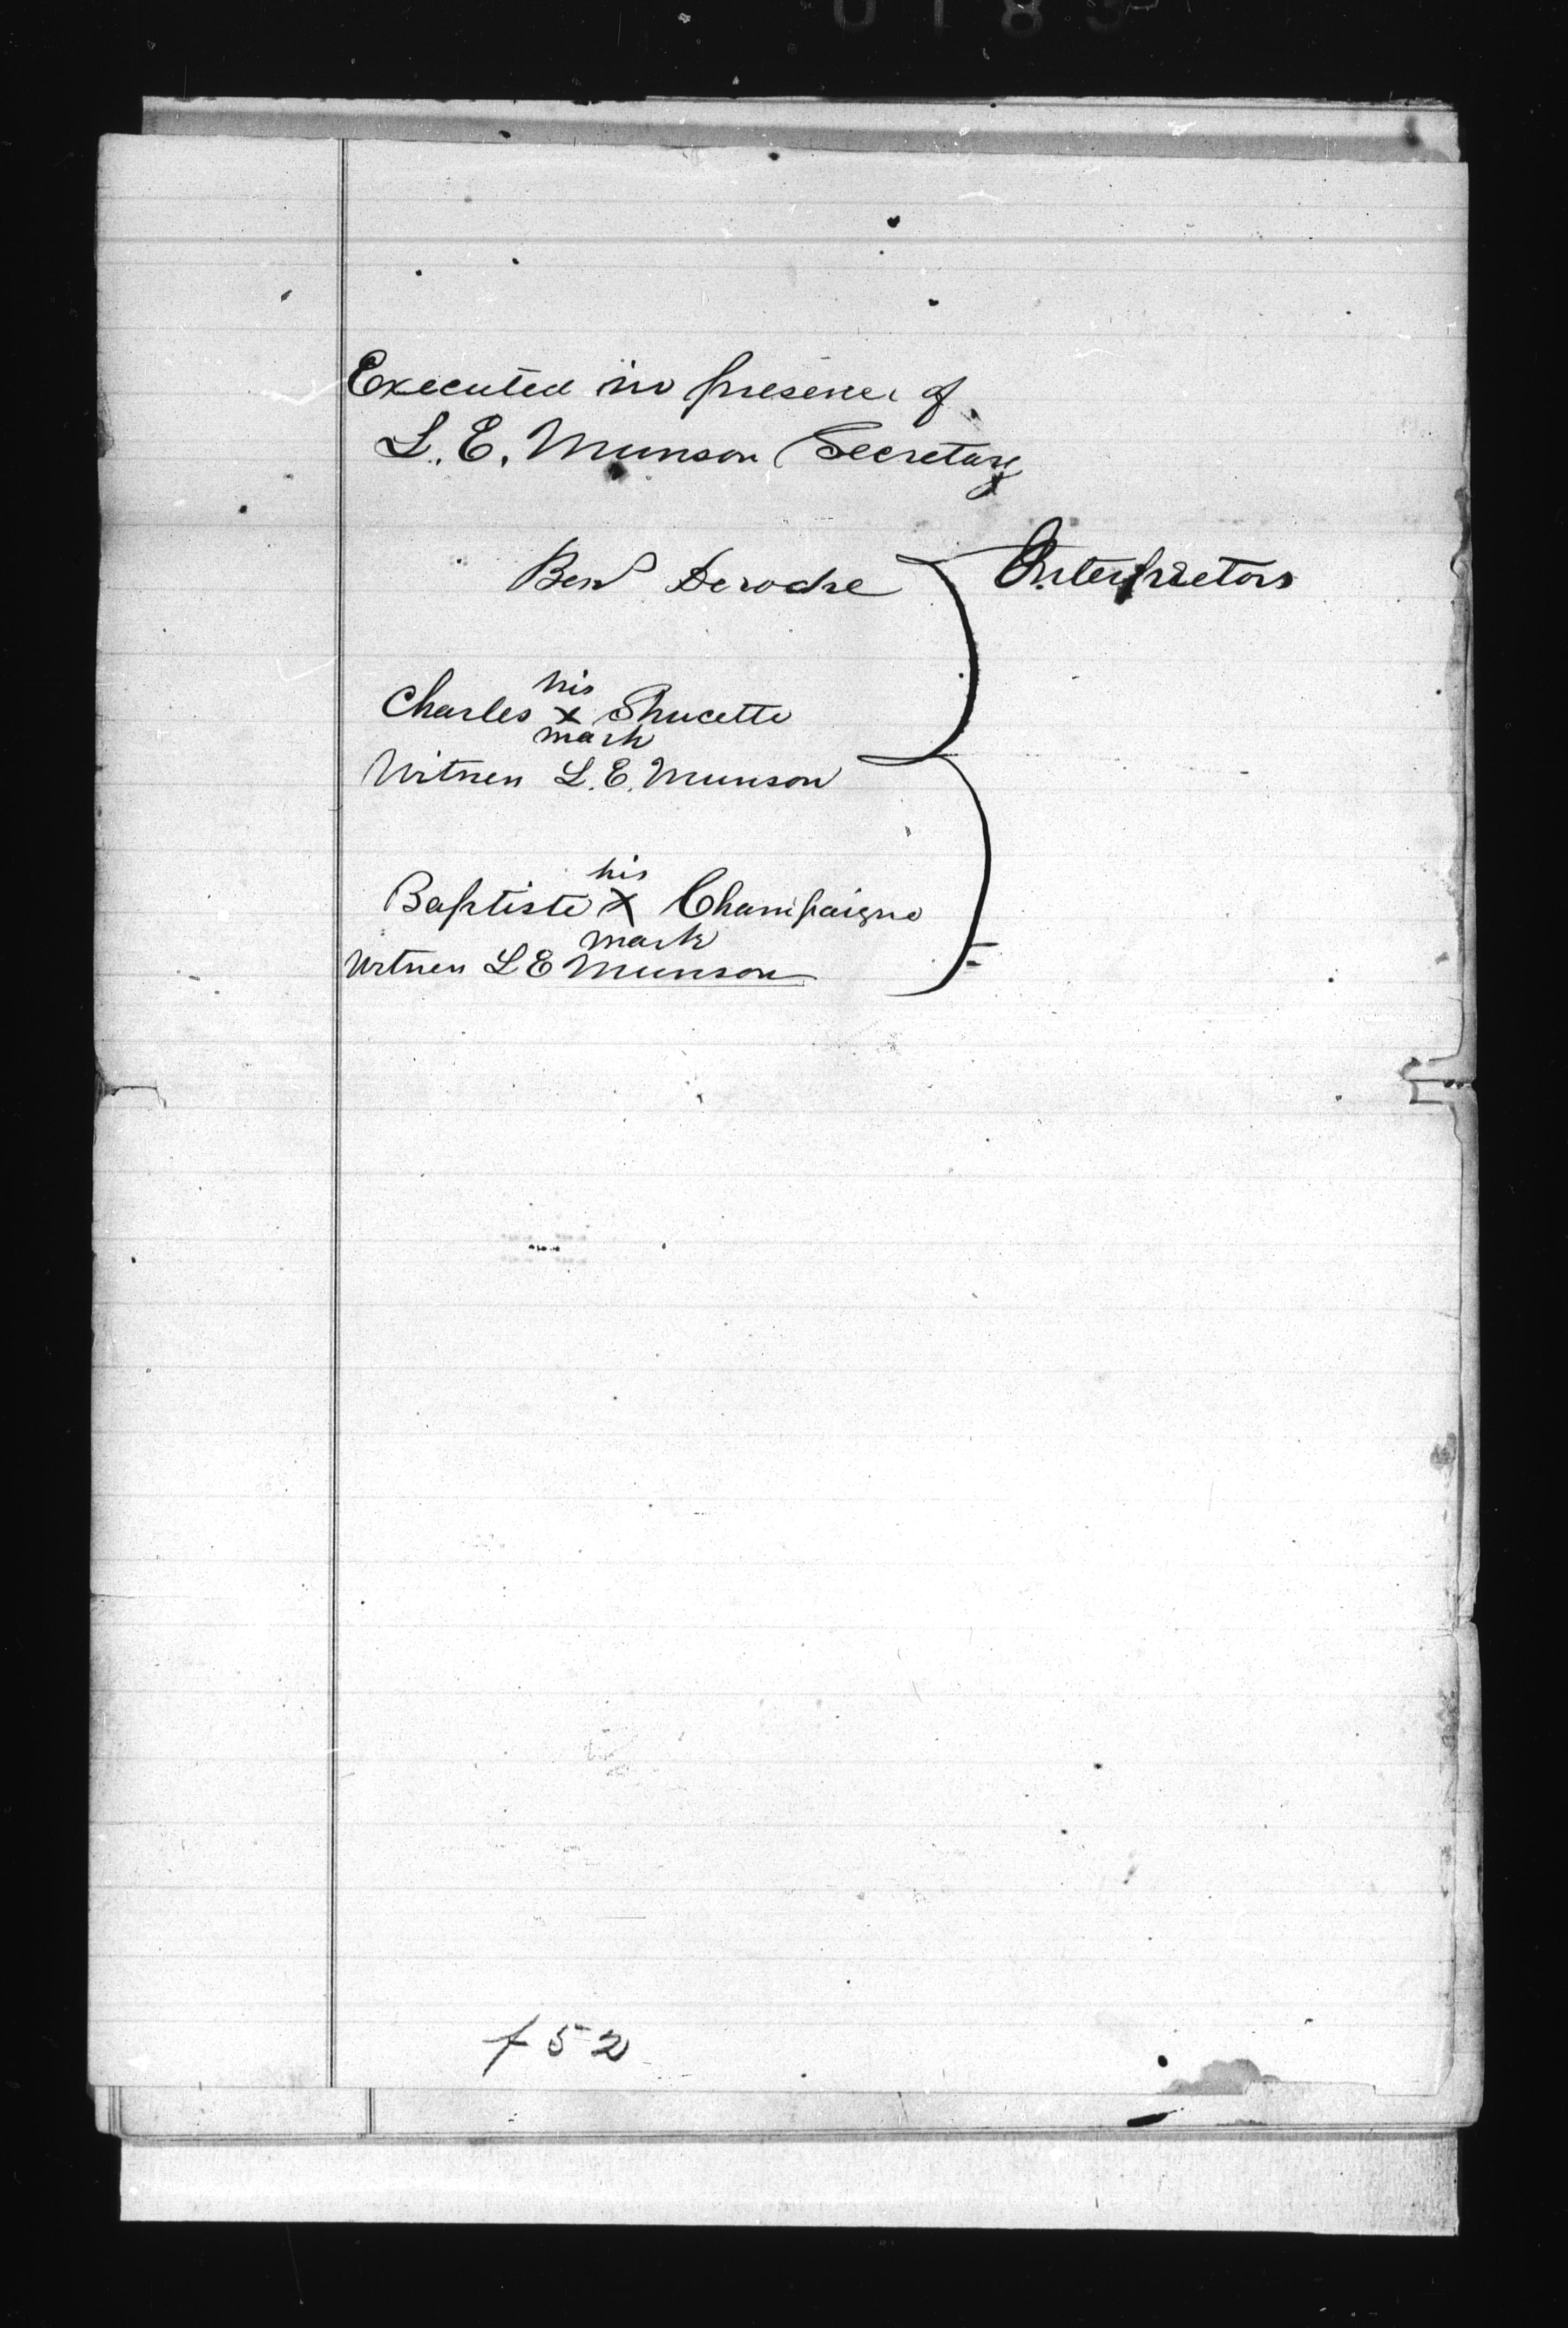 Executed in presence of
L. E. Munson Secretary
Ben Deroche Interpretors
his
Charles x Shucette
mark
Witness L. E. Munson
his
Baptiste x Champaigne
mark
Witness L E Munson
f 52